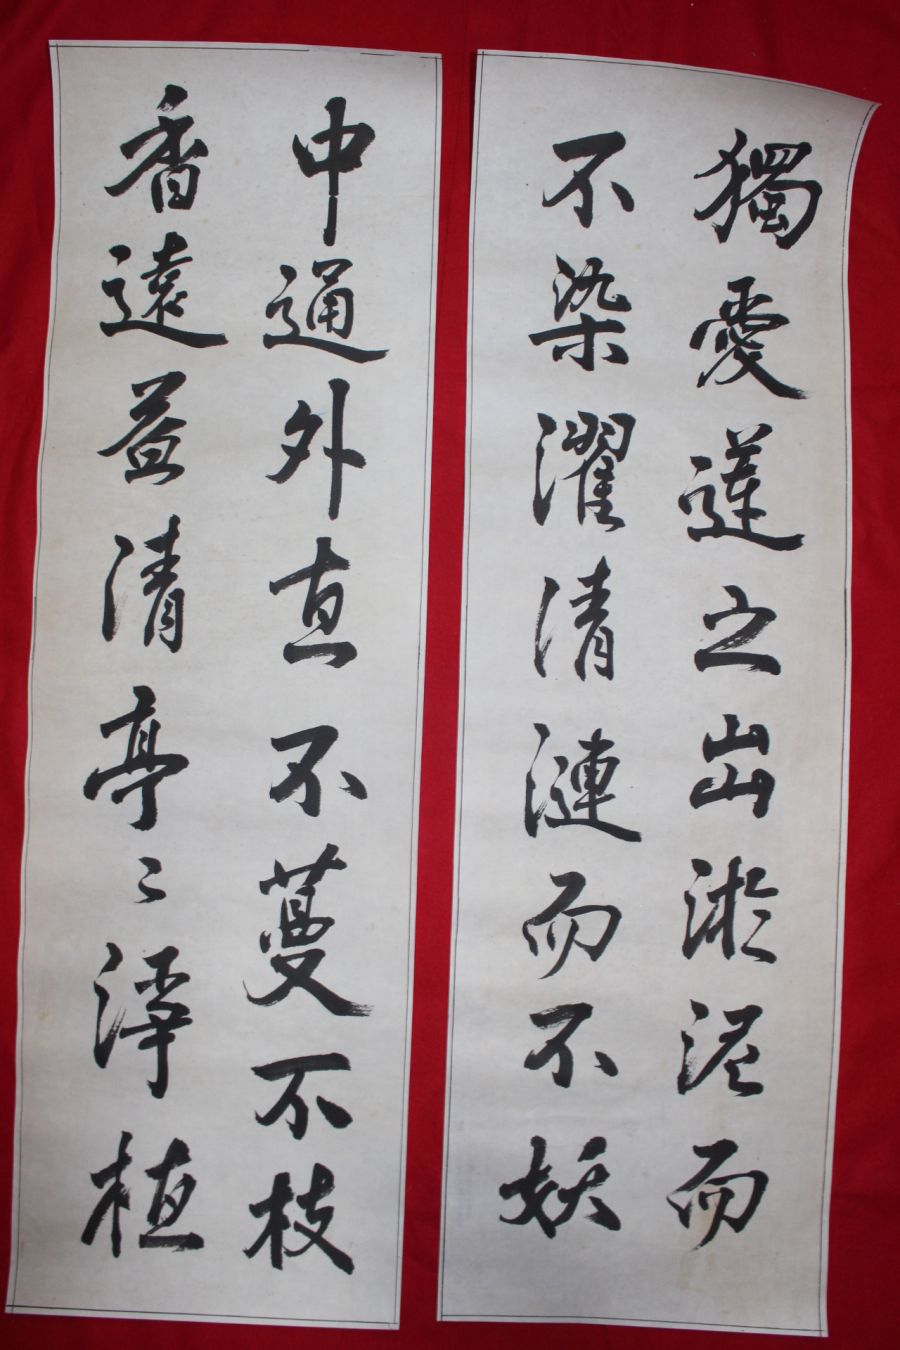 獨愛蓮之出淤泥而
不染濯清漣而不妖
中通外直不蔓不枝
香遠益清亭〻淨植